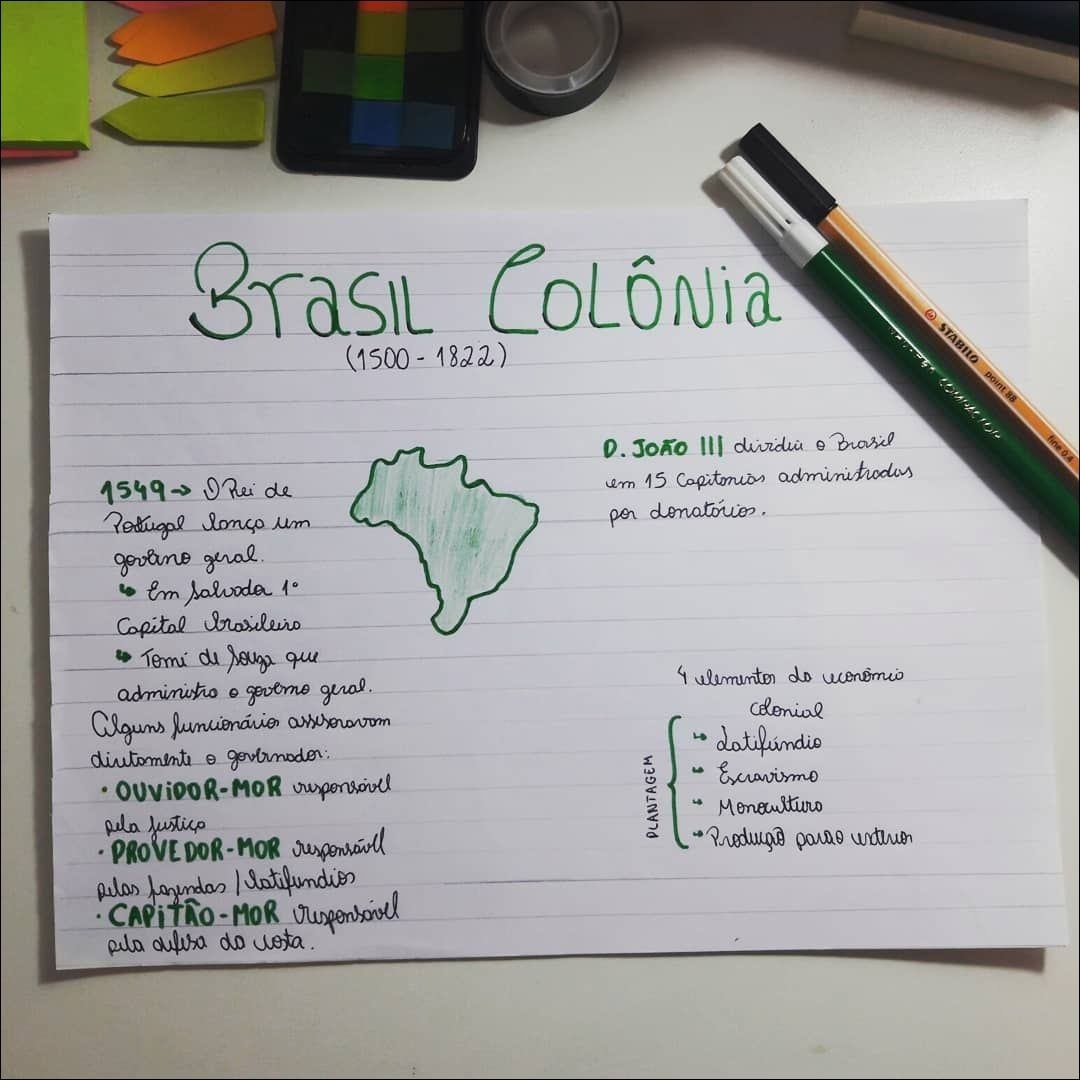 Brasil Colônia
(1500 - 1822)
1549→ O Rei de
Portugal lança um
governo geral.
↳ Em Salvador 1º
Capital brasileira
↳ Tomé de Souza que
administra o governo geral.
Alguns funcionários assessoravam
diretamente o governador:
· OUVIDOR-MOR responsável
pela justiça
· PROVEDOR-MOR responsável
pelas fazendas / latifundios
· CAPITÃO-MOR responsável
pela defesa da costa.
D. JOÃO III dividiu o Brasil
em 15 Capitanias administradas
por donatários.
4 elementos da economia
colonial
PLANTAGEM
↳ Latifúndio
↳ Escravismo
↳ Monocultura
↳ Produção para o exterior
STABILO point 88 fine 0.4
COMPACTOR